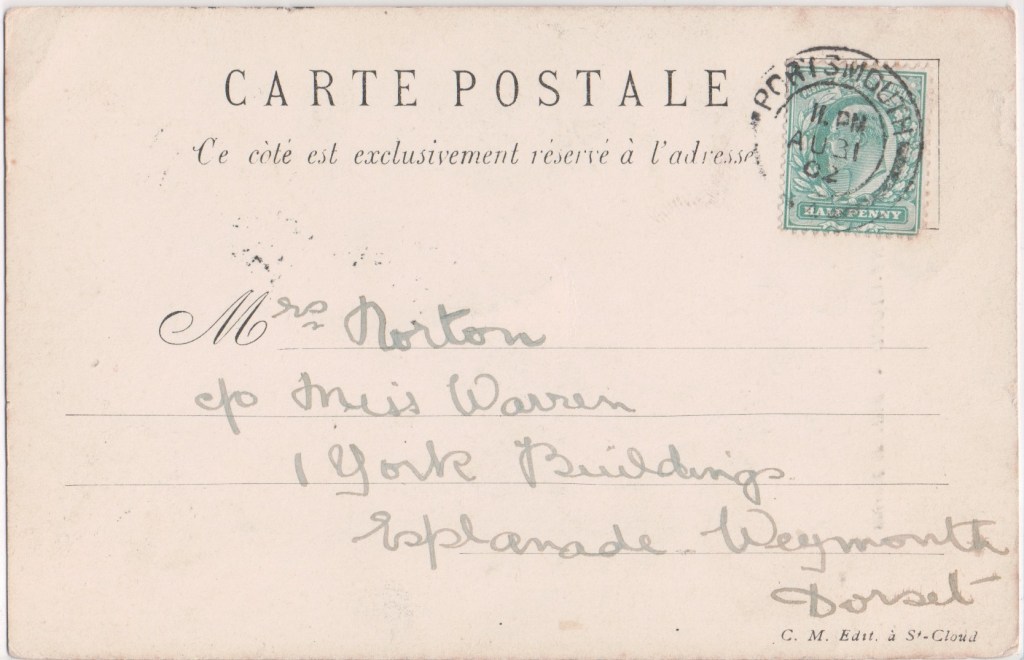 CARTE POSTALE
Ce côté est exclusivement réservé à l'adresse
PORTSMOUTH
11 PM
AU 31
02
HALFPENNY
Mrs Norton
c/o Miss Warren
1 York Buildings
Esplanade Weymouth
Dorset
C. M. Edit. à St-Cloud